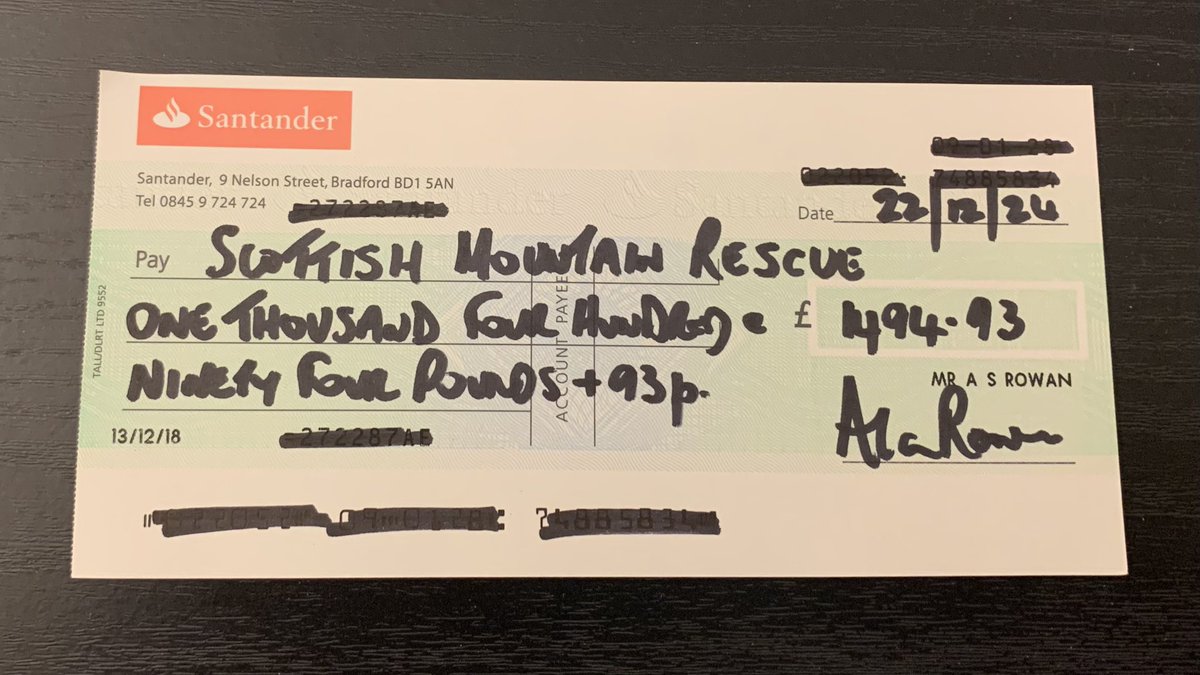 Santander
Santander, 9 Nelson Street, Bradford BD1 5AN
Tel 0845 9 724 724
Date 22/12/24
Pay SCOTTISH MOUNTAIN RESCUE
ONE THOUSAND FOUR HUNDRED &
£ 1494.93
NINETY FOUR POUNDS + 93p.
ACCOUNT PAYEE
TALL/DLRT LTD 9552
MR A S ROWAN
Ala Rowan
13/12/18